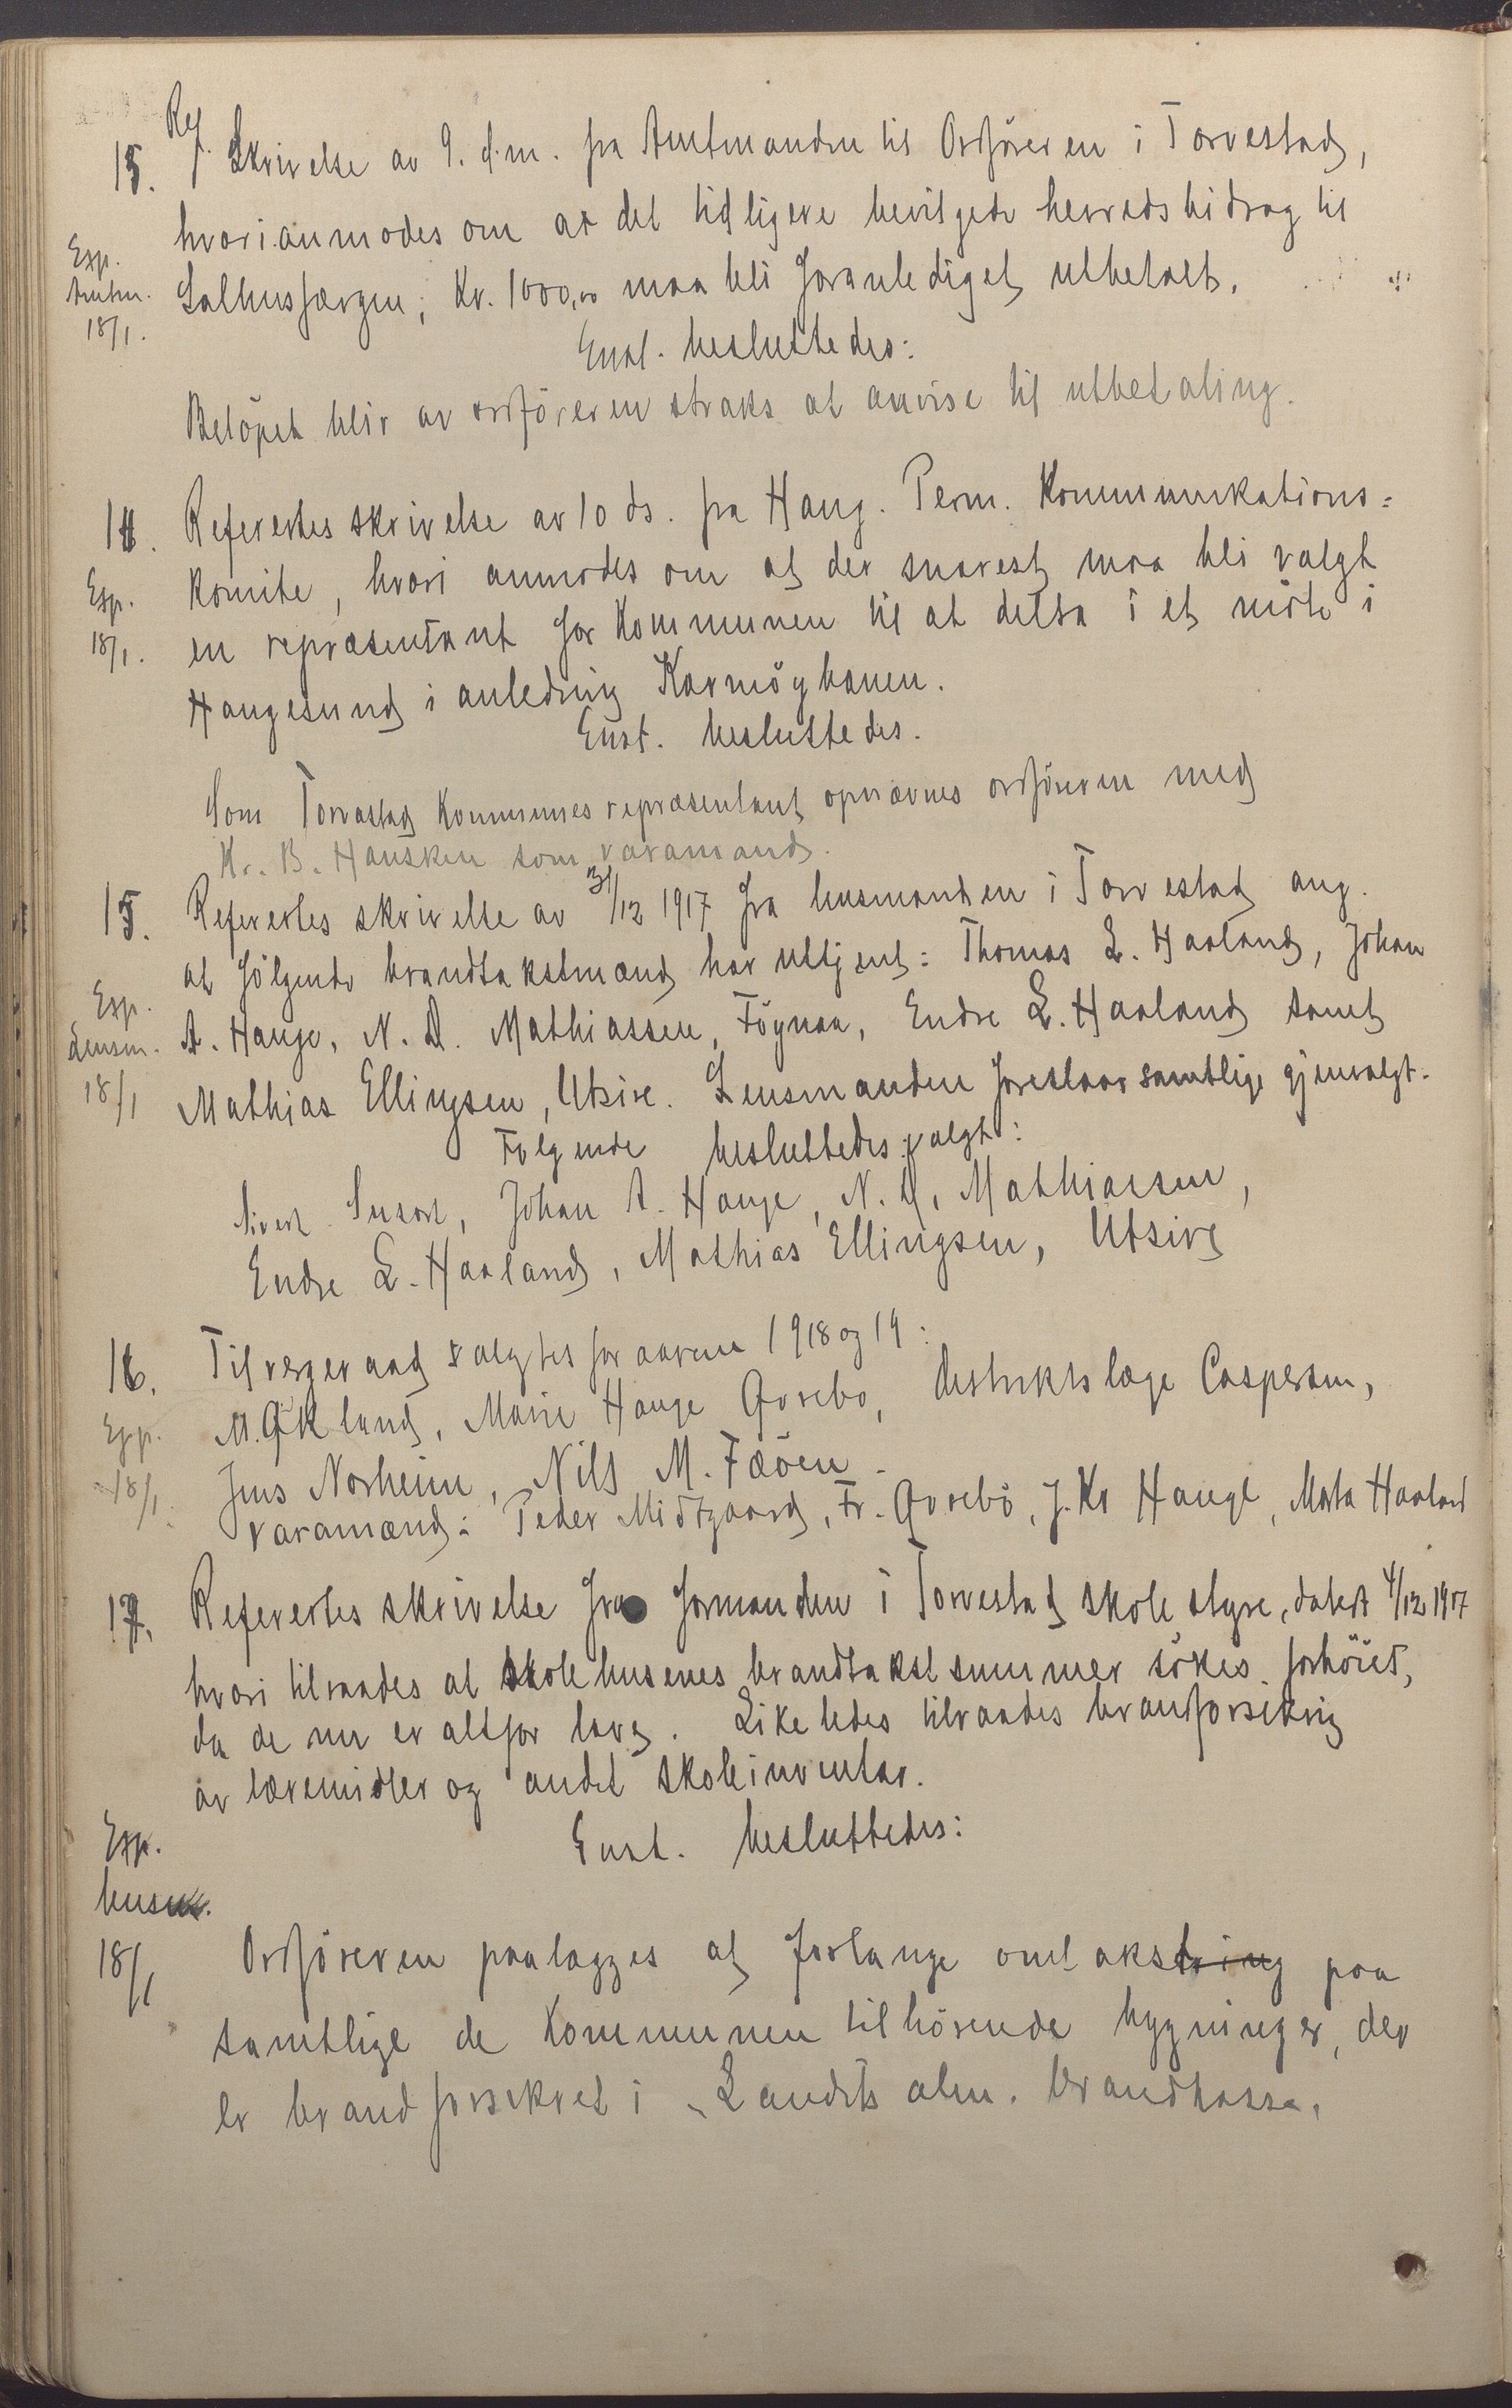 Ref.
15. Skrivelse av 9. d.m. fra Amtmanden til Ordföreren i Torvestad,
hvori anmodes om at det tidligere bevilgede herredsbidrag til
Exp.
Amtm.
18/1.
Salhusfærgen; Kr. 1000,00 maa bli foranlediget utbetalt.
Enst. besluttedes:
Belöpet blir av ordföreren straks at anvise til utbetaling.
14. Refertes skrivelse av 10 ds. fra Haug. Perm. Kommunikations=
komite, hvori anmodes om at der snarest maa bli valgt
Exp.
18/1.
en repræsentant for Kommunen til at delta i et möte i
Haugesund i anledning Karmöybanen.
Enst. besluttedes.
Som Torvastad Kommunes repræsentant opnævnes ordföreren med
Kr. B. Hausken som varamand.
15. Refertes skrivelse av 31/12 1917 fra lensmanden i Torvestad ang.
at fölgende brandtakstmænd har uttjent: Thomas L. Haaland, Johan
Exp.
Lensm.
18/1
A. Hauge, N. D. Mathiassen, Föynaa, Endre L. Haaland samt
Mathias Ellingsen, Utsire. Lensmanden foreslaar samtlige gjenvalgt.
Fölgende besluttedes valgt:
Sivert Susort, Johan A. Hauge, N. D. Mathiassen,
Endre L. Haaland, Mathias Ellingsen, Utsire
16. Til vergeraad valgtes for aarene 1918 og 19:
M. Økland, Marie Hauge Qvrebo, distriktslæge Caspersen,
Exp.
18/1.
Jens Norheim, Nils M. Fæöen.
Varamænd: Peder Midtgaard, Fr. Qvrebö, J. Kr Hauge, Marta Haaland
17. Refertes skrivelse fra formanden i Torvestad skolestyre, datert 4/12 1917
hvori tilraades at skolehusenes brandtakstsummer sökes forhöiet,
da de nu er altfor lave. Likeledes tilraades brandforsikring
av læremidler og andet skoleinventar.
Exp.
lensm.
18/1
Enst. besluttedes:
Ordföreren paalægges at forlange omtakstring paa
samtlige de Kommunen tilhörende bygninger, der
er brandforsikret i „Landets alm. brandkasse.